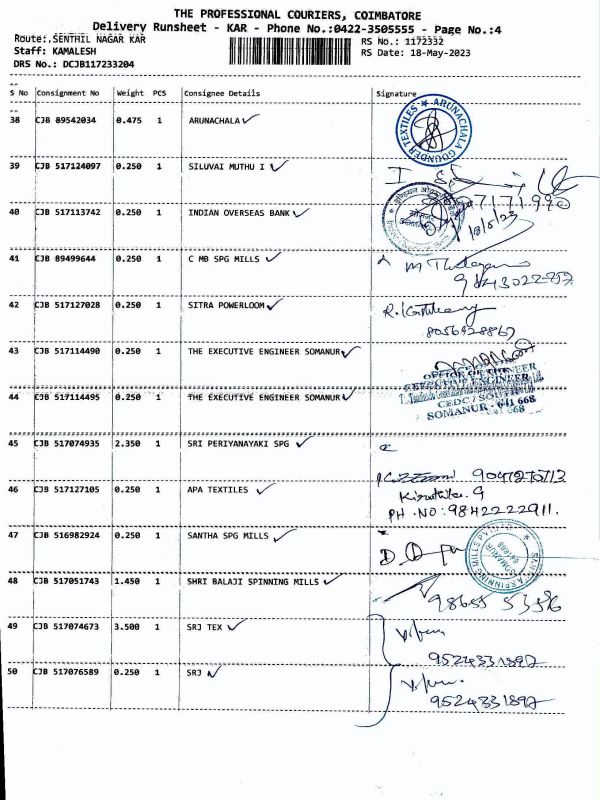 THE PROFESSIONAL COURIERS, COIMBATORE
Delivery Runsheet - KAR - Phone No.:0422-3505555 - Page No.:4
Route:.SENTHIL NAGAR KAR RS No.: 1172332
Staff: KAMALESH RS Date: 18-May-2023
DRS No.: DCJB117233204
S No Consignment No Weight PCS Consignee Details Signature
38 CJB 89542034 0.475 1 ARUNACHALA
ARUNACHALA GOUNDER TEXTILES
39 CJB 517124097 0.250 1 SILUVAI MUTHU I
40 CJB 517113742 0.250 1 INDIAN OVERSEAS BANK
18/5/23
41 CJB 89499644 0.250 1 C MB SPG MILLS
42 CJB 517127028 0.250 1 SITRA POWERLOOM
8056928867
43 CJB 517114490 0.250 1 THE EXECUTIVE ENGINEER SOMANUR
OFFICE OF THE
EXECUTIVE ENGINEER
44 CJB 517114495 0.250 1 THE EXECUTIVE ENGINEER SOMANUR
CEDC / SOUTH
SOMANUR - 641 668
45 CJB 517074935 2.350 1 SRI PERIYANAYAKI SPG
46 CJB 517127105 0.250 1 APA TEXTILES
PH.NO: 9842222911.
47 CJB 516982924 0.250 1 SANTHA SPG MILLS
48 CJB 517051743 1.450 1 SHRI BALAJI SPINNING MILLS
49 CJB 517074673 3.500 1 SRJ TEX
9524331897
50 CJB 517076589 0.250 1 SRJ
9524331897